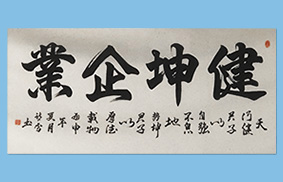 健坤企業
天
行健
君子
以
自強
不息
地
勢坤
君子
以
厚德
載物
丙申
年
夏月